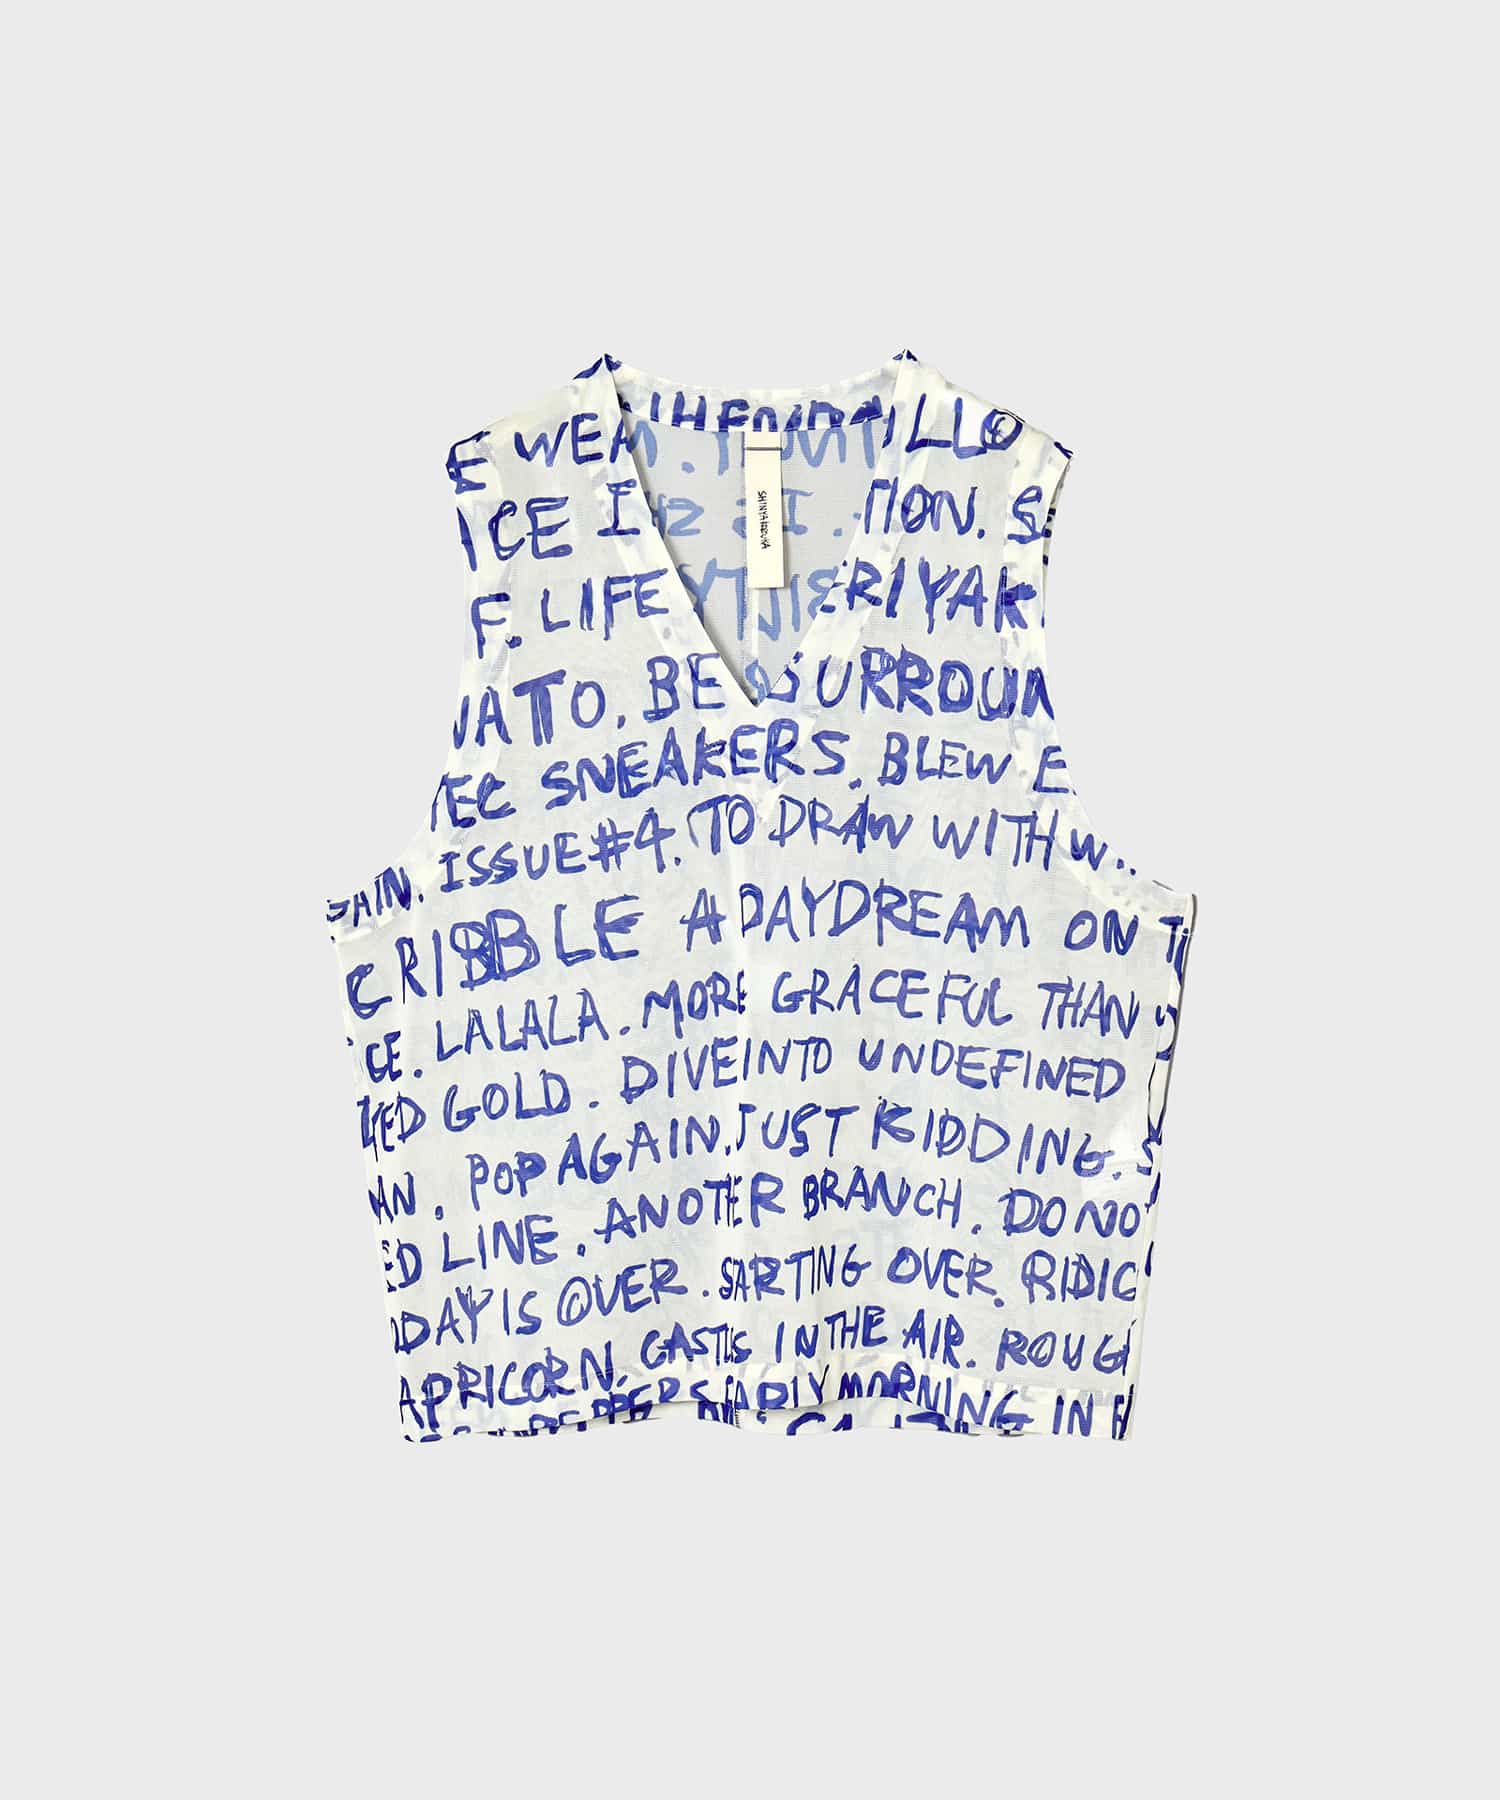 SHINYAKOZUKA
E WEA ILLO
ICE I TION. S
F. LIFE ERIYAK
ATTO. BE SURROUN
TEC SNEAKERS. BLEW E
GAIN. ISSUE #4. TO DRAW WITH W..
CRIBBLE A DAYDREAM ON T
GE. LALALA. MORE GRACEFUL THAN
ED GOLD. DIVE INTO UNDEFINED
AN. POP AGAIN. JUST KIDDING. S
ED LINE. ANOTHER BRANCH. DO NO
DAY IS OVER. STARTING OVER. RIDIC
APRICORN. CASTLES IN THE AIR. ROUG
PEPPERS. EARLY MORNING IN